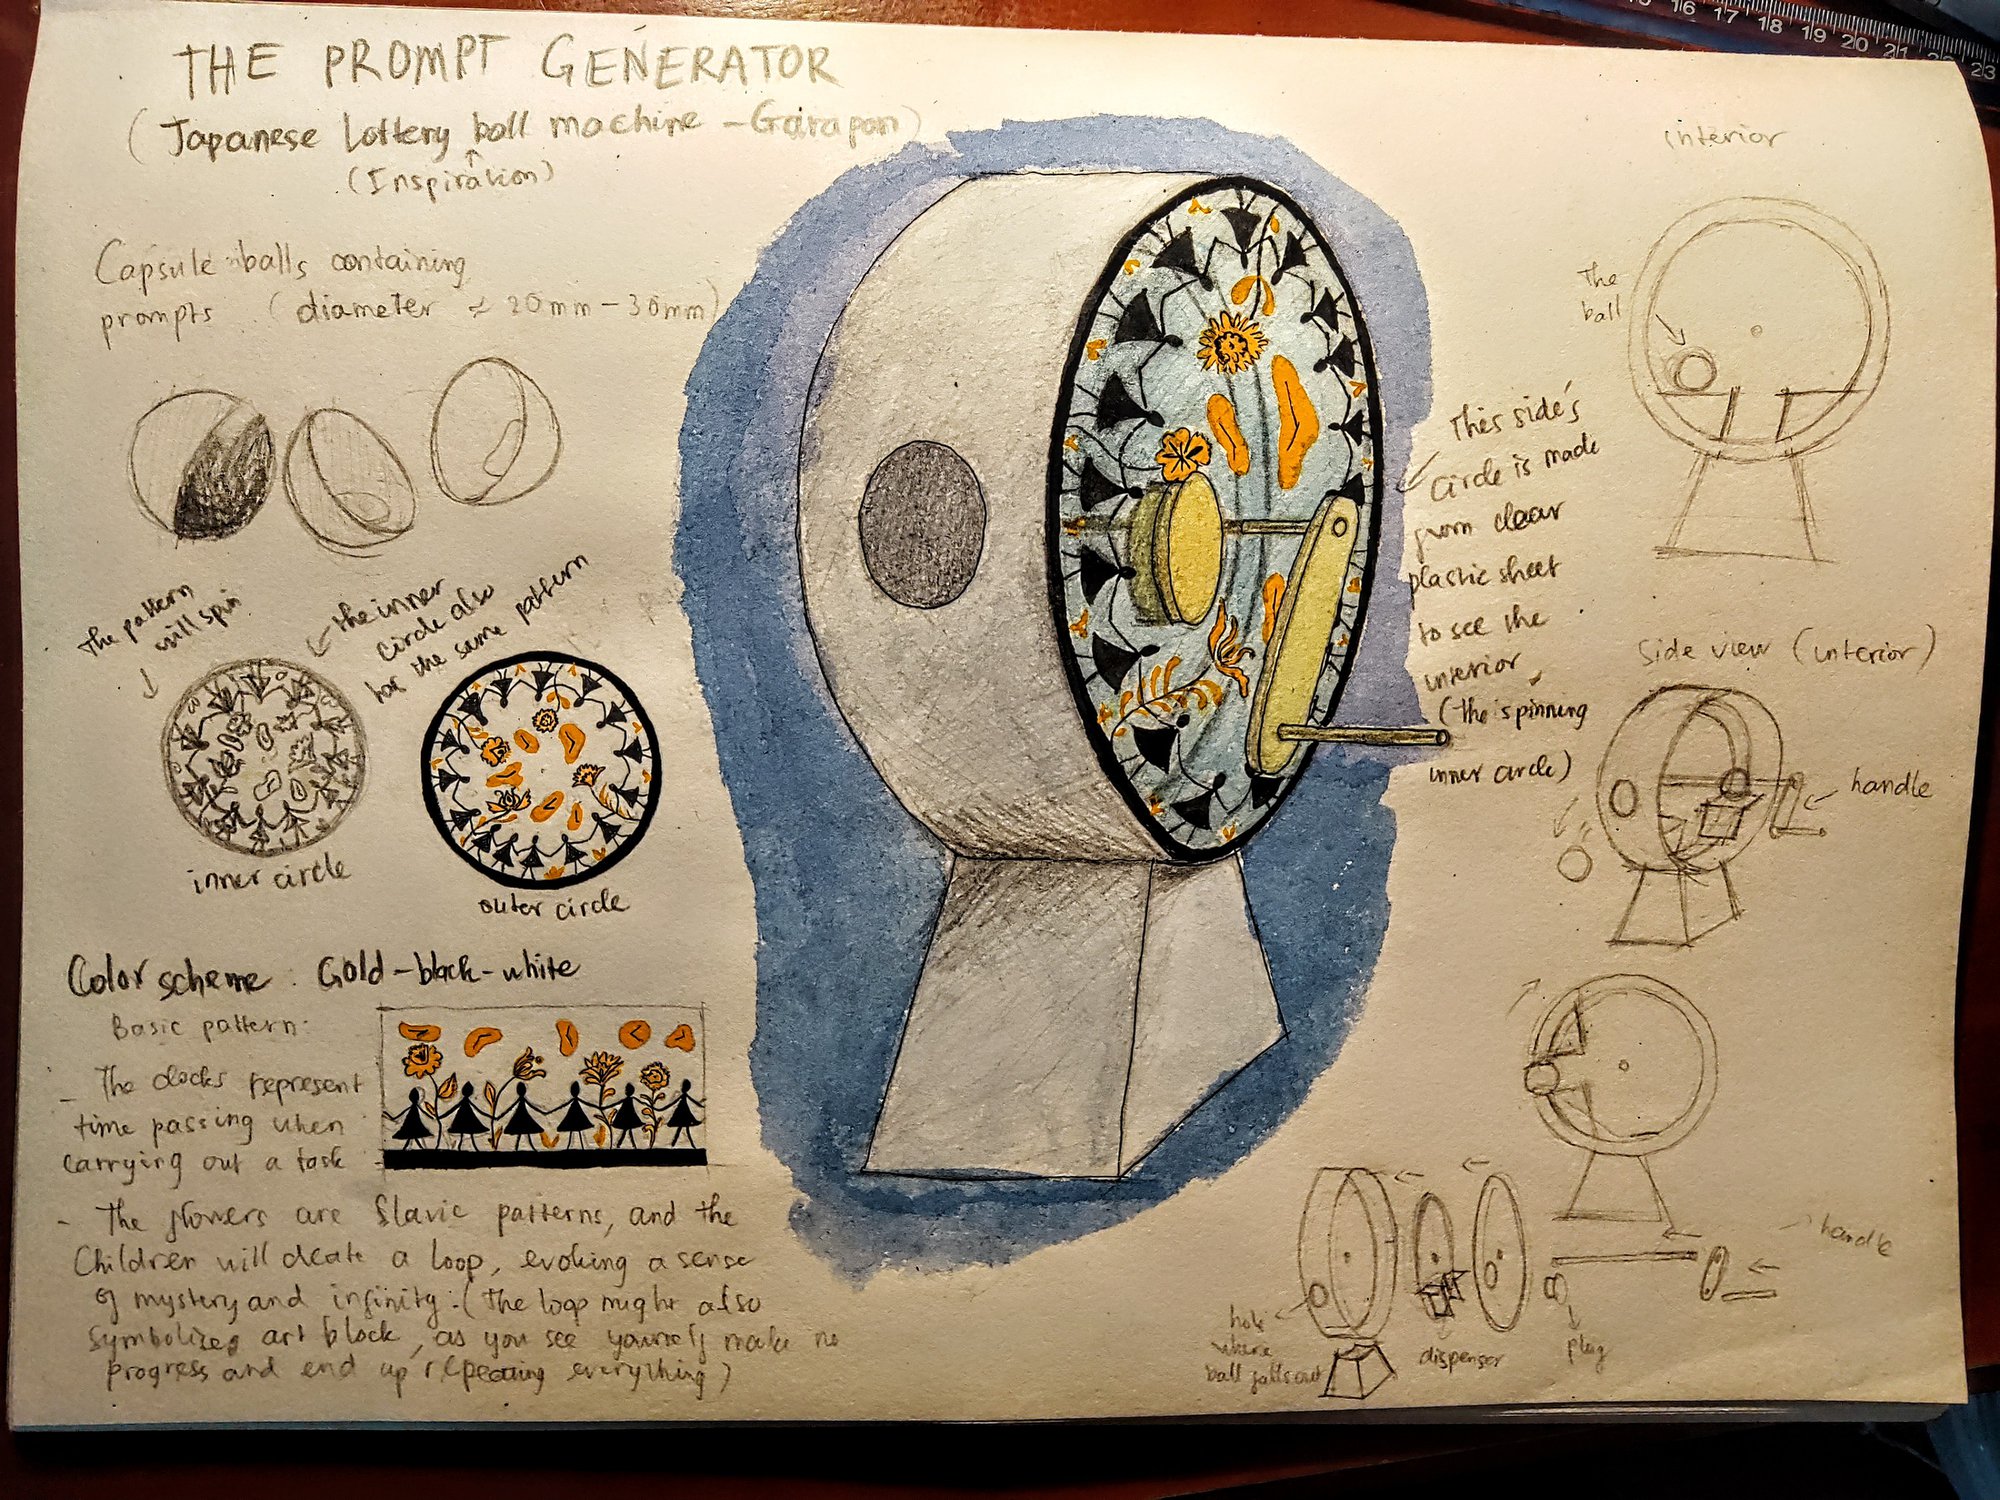 THE PROMPT GENERATOR
(Japanese Lottery ball machine - Garapon)
(Inspiration)
Capsule balls containing
prompts (diameter ≈ 20mm - 30mm)
The pattern
will spin
the inner
circle also
has the same pattern
inner circle
outer circle
Color scheme: Gold-black-white
Basic pattern:
- The clocks represent
time passing when
carrying out a task
- The flowers are Slavic patterns, and the
Children will create a loop, evoking a sense
of mystery and infinity. (The loop might also
symbolizes art block, as you see yourself make no
progress and end up repeating everything)
This side's
circle is made
from clear
plastic sheet
to see the
interior
(the spinning
inner circle)
interior
The
ball
Side view (interior)
handle
handle
hole
where
ball falls out
dispenser
plug
15 16 17 18 19 20 21 22 23